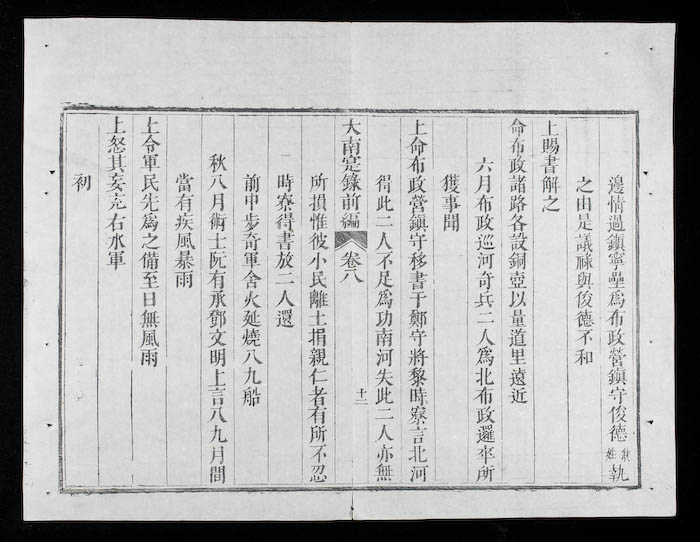 邊情過鎮寧壘爲布政營鎮守俊德缺姓執
之由是議祿與俊德不和
上賜書解之
命布政諸路各設銅壺以量道里遠近
六月布政巡河奇兵二人爲北布政邏卒所
獲事聞
上命布政營鎮守移書于鄭守將黎時寮言北河
得此二人不足爲功南河失此二人亦無
大南寔錄前編 卷八 十二
所損惟彼小民離土捐親仁者有所不忍
時寮得書放二人還
前中步奇軍舍火延燒八九船
秋八月術士阮有承鄧文明上言八九月間
當有疾風暴雨
上令軍民先爲之備至日無風雨
上怒其妄充右水軍
初